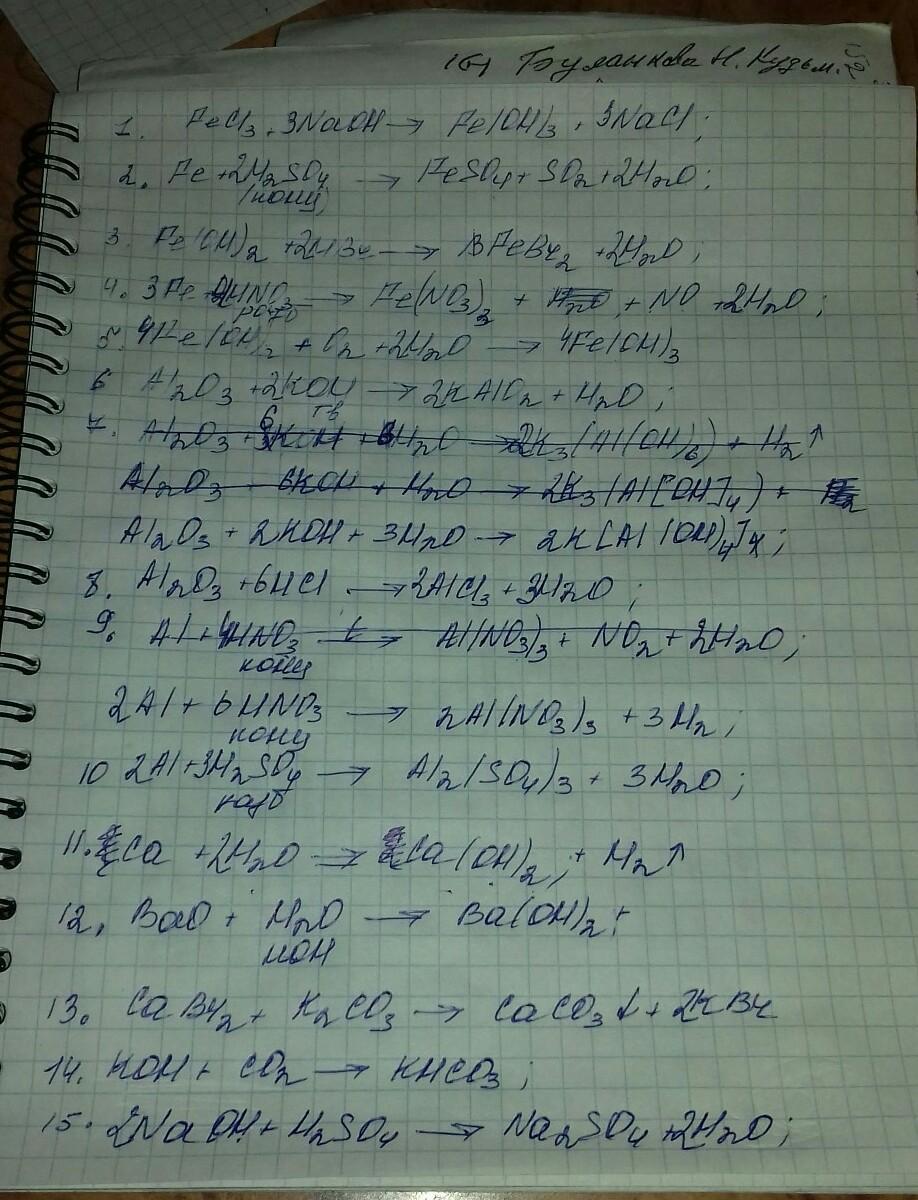 Буланкова Н. Кузьм.
1. FeCl₃ + 3NaOH → Fe(OH)₃ + 3NaCl;
2. Fe + 2H₂SO₄ → FeSO₄ + SO₂ + 2H₂O;
(конц)
3. Fe(OH)₂ + 2HBr → FeBr₂ + 2H₂O;
4. 3Fe + 4HNO₃ → Fe(NO₃)₃ + NO + 2H₂O;
разб
5. 4Fe(OH)₂ + O₂ + 2H₂O → 4Fe(OH)₃
6 Al₂O₃ + 2KOH → 2KAlO₂ + H₂O;
тв
7. Al₂O₃ + 6KOH + H₂O → 2K₃(Al(OH)₆) + H₂↑
Al₂O₃ 6KOH + H₂O → 2K₃(Al[OH]₄) +
Al₂O₃ + 2KOH + 3H₂O → 2K[Al(OH)₄];
8. Al₂O₃ + 6HCl → 2AlCl₃ + 3H₂O;
9. Al + 4HNO₃ t→ Al(NO₃)₃ + NO₂ + 2H₂O;
конц
2Al + 6HNO₃ → 2Al(NO₃)₃ + 3H₂;
конц
10 2Al + 3H₂SO₄ → Al₂(SO₄)₃ + 3H₂O;
разб
11. Ca + 2H₂O → Ca(OH)₂ + H₂↑
12. BaO + H₂O → Ba(OH)₂
HOH
13. CaBr₂ + K₂CO₃ → CaCO₃↓ + 2KBr
14. KOH + CO₂ → KHCO₃;
15. 2NaOH + H₂SO₄ → Na₂SO₄ + 2H₂O;